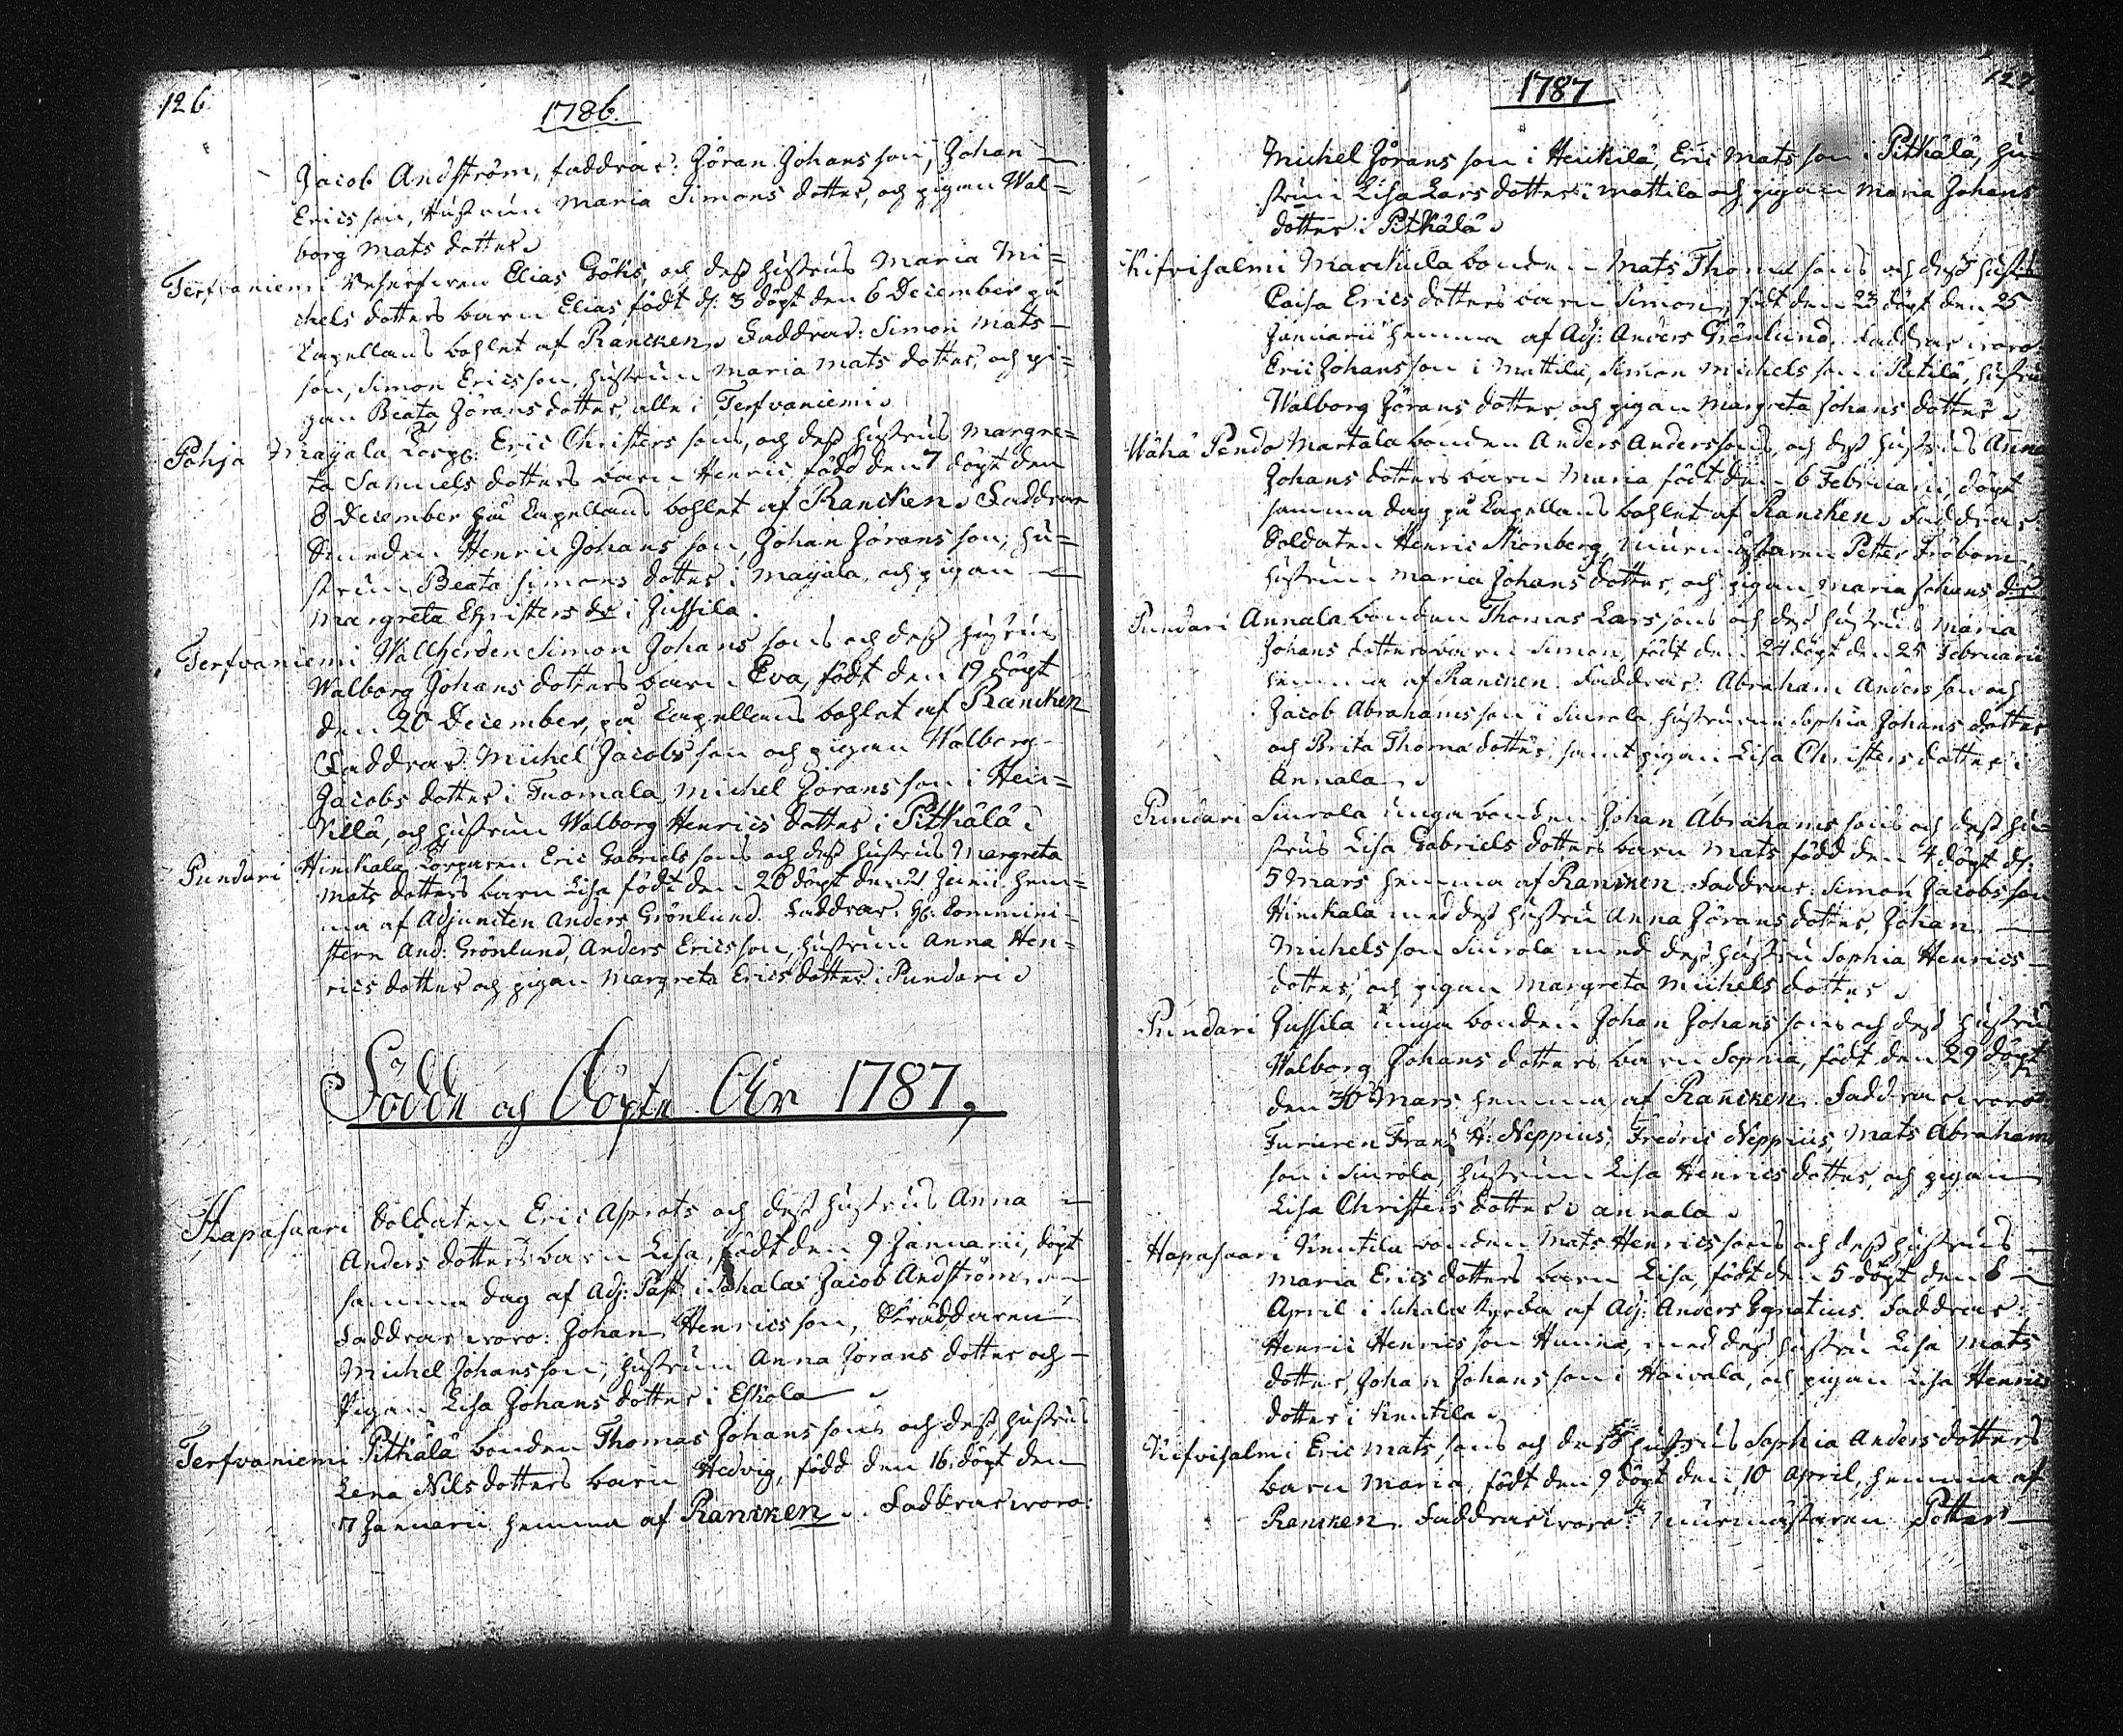 126.
1786.
Jacob Andström, faddrar: Jöran Johansson, Johan
Ericsson, hustrun Maria Simons dotter, och pigan Wal=
borg Mats dotter.
Terfvaniemi Elias Göks, och dess hustrus Maria Mi=
chels dotters barn Elias födt d: 3 döpt den 6 December på
Capellans bohlet af Rancken. Faddrar: Simon Mats-
son, Simon Ericsson, hustrun Maria Mats dotter, och pi=
gan Beata Jörans dotter, alle i Terfvaniemi.
Pohja Maijala Eric Christers sons, och dess hustrus Margre=
ta Samuels dotters barn Henric född den 7 döpt den
8 December på Capellans bohlet af Rancken. Faddrar
Henric Johansson, Johan Jöransson, hu=
strun Beata Simons dotter i Maijala och pigan
Margreta Christers dr i Jussila.
Terfvaniemi Wallherden Simon Johans sons och dess hustrus
Walborg Johans dotters barn Eva, födt den 19 döpt
den 20 December, på Capellans bohlet af Rancken
Faddrar: Michel Jacobs son och pigan Walborg
Jacobs dotter i Tuomala, Michel Jörans son i Hein=
, och hustrun Walborg Henrics dotter i Pitkälä.
Pundari Himkala Eric Gabriels sons och dess hustrus Margreta
Mats dotters barn Lisa födt den 20 döpt den 21 Junii hem=
ma af Adjuncten Anders Grönlund. Faddrar:
And: Grönlund, Anders Ericsson, hustrun Anna Hen=
rics dotter och pigan Margreta Erics dotter i Pundari.
Födde och Döpte Åhr 1787,
Hapasaari Soldaten Eric och dess hustrus Anna
Anders dotters barn Lisa, födt den 9 Januarii, döpt
samma dag af Adj: Past: i Jacob Andström.
Faddrar woro: Johan Henricsson, Skräddaren
Michel Johansson, hustrun Anna Jörans dotter och
Pigan Lisa Johans dotter i Eskola.
Terfvaniemi Pitkälä bonden Thomas Johans sons och dess hustrus
Lena Nils dotters barn Hedvig, född den 16 döpt den
17 Januarii hemma af Rancken. Faddrar woro:
1787
127.
Michel Jörans son i Heickilä, Eric Mats son i Pitkälä, hu=
strun Lisa Lars dotter i Mattila och pigan Maria Johans
dotter i Pitkälä.
Kifvisalmi bonden Mats Thomas sons och dess hustrus
Caisa Erics dotters barn Simon, födt den 23 döpt den 25
Januarii hemma af Adj: Anders Grönlund. Faddrar woro
Eric Johansson i Mattila, Simon Michels son i , hustrun
Walborg Jörans dotter, och pigan Margreta Johans dotter.
Wähä Pundo Martala bonden Anders Anderssons, och dess hustrus Anna
Johans dotters barn Maria, födt den 6 Februarii, döpt
samma dag på Capellans bohlet af Rancken. Faddrar
Soldaten Henric , murmästaren Petter Fröbom,
hustrun Maria Johans dotter, och pigan Maria Johans dr
Pundari Annala bonden Thomas Lars sons och dess hustrus Maria
Johans dotters barn Simon, födt den 24 döpt den 25 Februarii
hemma af Rancken. Faddrar: Abraham Anders son och
Jacob Abrahams son i Siurola, hustrurne Sophia Johans dotter
och Brita Thoma dotter, samt pigan Lisa Christers dotter i
Annala.
Pundari Siurola unga bonden Johan Abrahams sons och dess hu-
strus Lisa Gabriels dotters barn Mats född den 4 döpt d:
5 Mars hemma af Rancken. Faddrar: Simon Jacobsson
Himkala med dess hustru Anna Jörans dotter, Johan
Michelsson Siurola med dess hustru Sophia Henrics-
dotter, och pigan Margreta Michels dotter.
Pundari Jussila unga bonden Johan Johans sons och dess hustrus
Walborg Johans dotters barn Sophia, födt den 29 döpt
den 30 Mars hemma af Rancken. Faddrar woro
Furieren Frans H: Neppius, Fredric Neppius, Mats Abrahams
son i Siurola, hustrun Lisa Henrics dotter, och pigan
Lisa Christers dotter i Annala.
Hapasaari Knutila bonden Mats Henrics sons och dess hustrus
Maria Erics dotters barn Lisa, födt den 5 döpt den 8
April i kyrka af Adj: Anders Egnatius. Faddrar:
Henric Henrics son , med dess hustru Lisa Mats
dotter, Johan Johans son i , och pigan Lisa Henrics
dotter i Knutila.
Kifvisalmi Eric Mats sons och dess hustrus Sophia Anders dotters
barn Maria, födt den 9 döpt den 10 April, hemma af
Rancken. Faddrar woro: murmästaren Petter